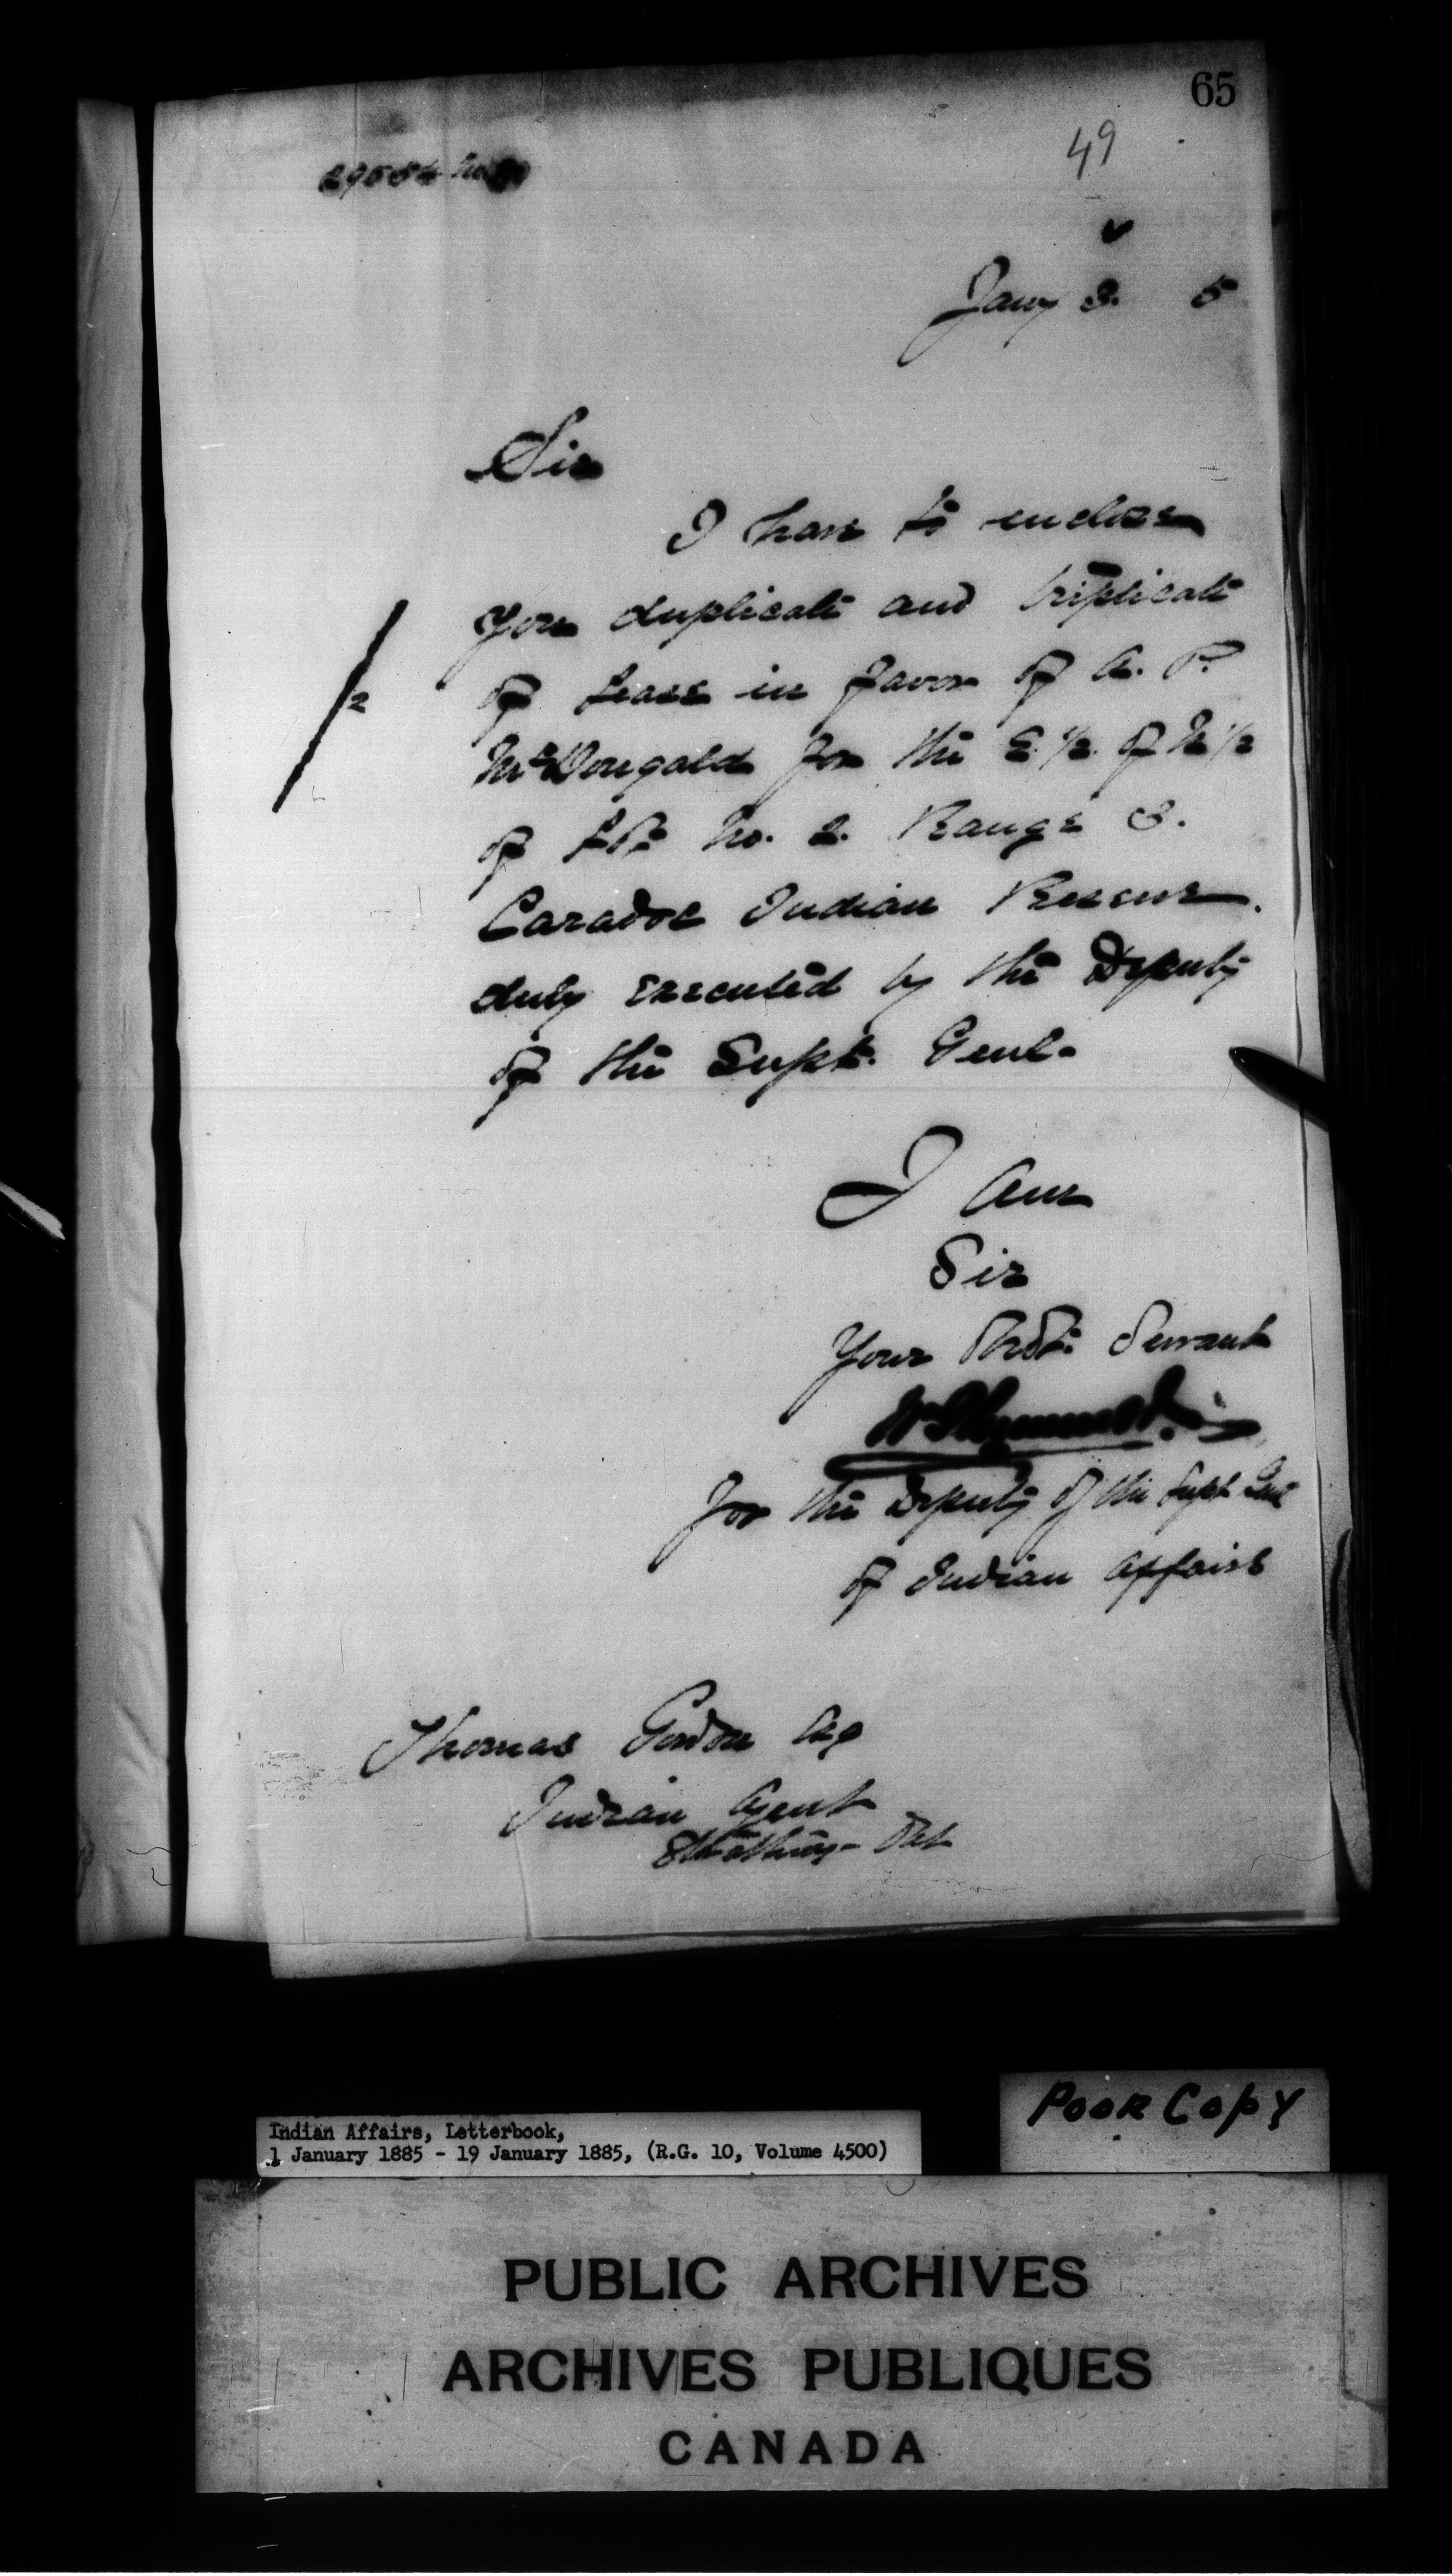 65
49
Jany 3. 5
Sir
I have to enclose
you duplicate and triplicate
of Lease in favor of A. P.
McDougald for the E. 1/2 of N 1/2
of Lot No. 2. Range 3.
Caradoc Indian Reserve.
duly executed by the Deputy
of the Supt. Genl.
2
I am
Sir
Your Obdt. Servant
for the Deputy of the Supt Genl
of Indian Affairs
Thomas Gordon Esq
Indian Agent
Strathroy - Ont
Poor Copy
Indian Affairs, Letterbook,
1 January 1885 - 19 January 1885, (R.G. 10, Volume 4500)
PUBLIC ARCHIVES
ARCHIVES PUBLIQUES
CANADA